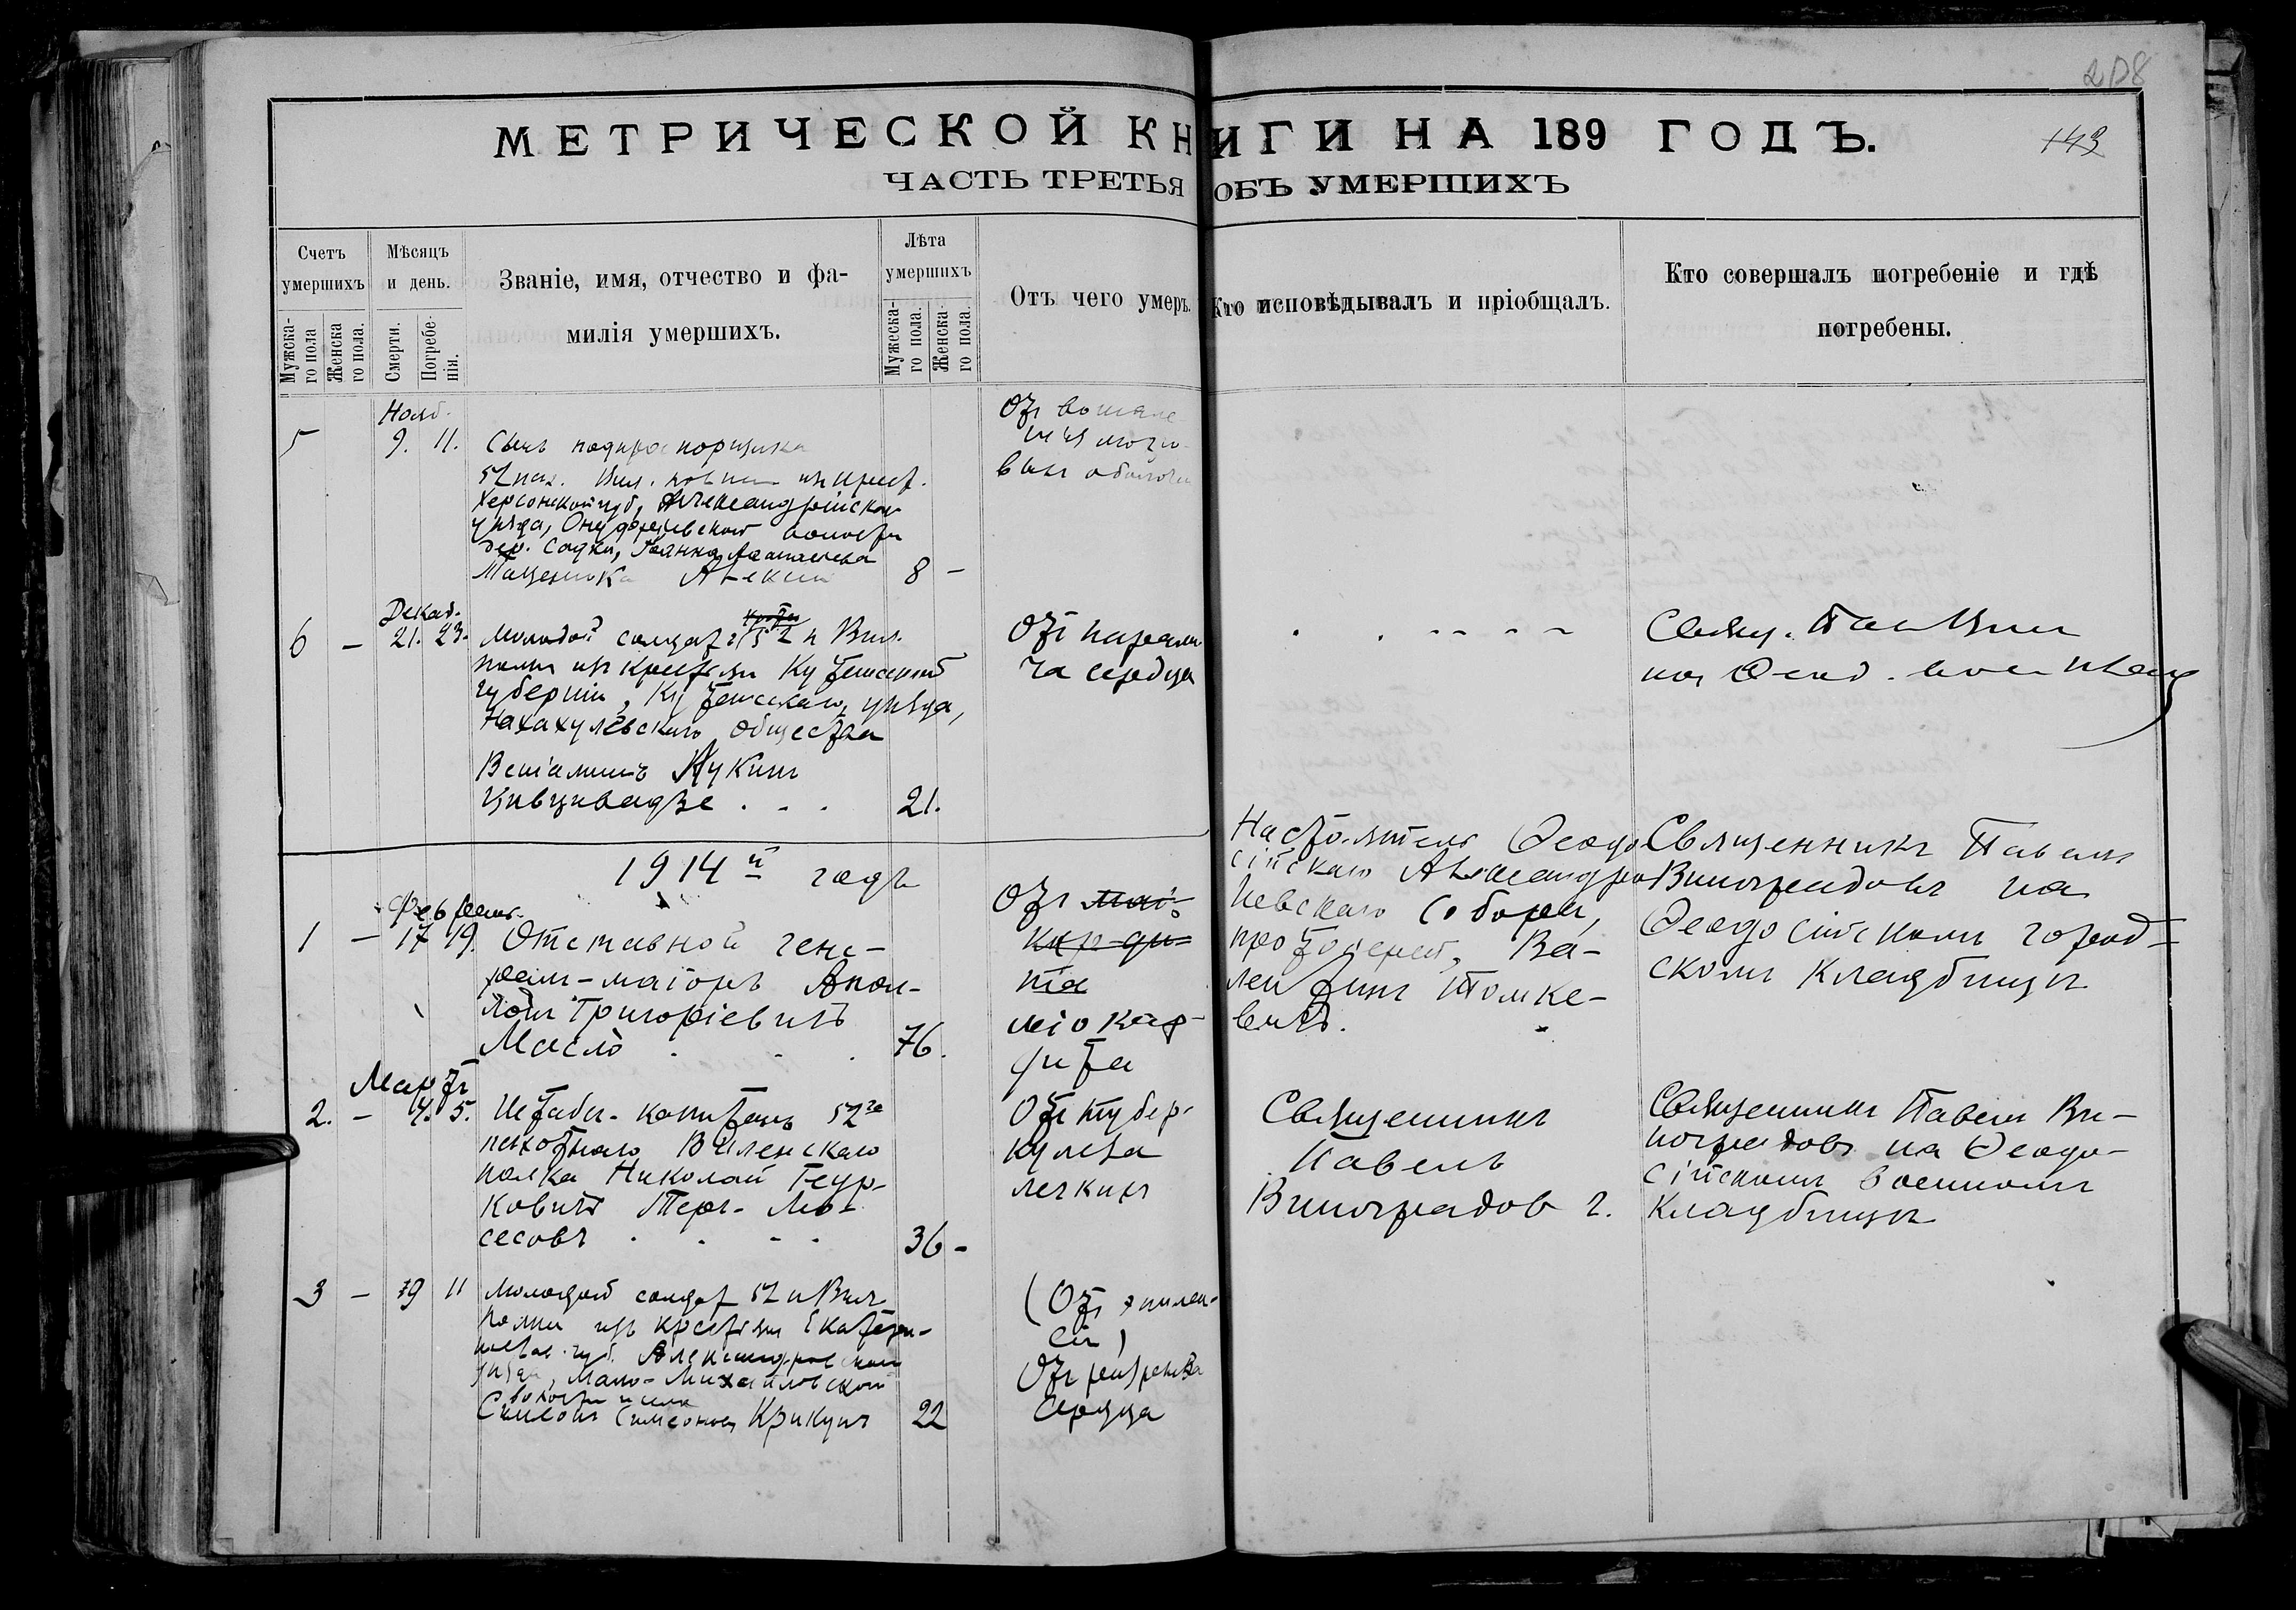 208
МЕТРИЧЕСКОЙ КНИГИ НА 189 ГОДЪ.
143
ЧАСТЬ ТРЕТЬЯ ОБЪ УМЕРШИХЪ
Счетъ умершихъ
Мужска-
го пола
Женска
го пола.
Мѣсяцъ и день.
Смерти.
Погребе-
нія.
Званіе, имя, отчество и фа-
милія умершихъ.
Лѣта умершихъ
Мужеска-
го пола.
Женска-
го пола.
Отъ чего умеръ.
Кто исповѣдывалъ и пріобщалъ.
Кто совершалъ погребеніе и гдѣ
погребены.
Нояб.
5
9. 11.
Сынъ подпрапорщика
52 пѣх. Вил. полка изъ крест.
Херсонской губ, Александрійскаго
уѣзда, Онуфріевской волости
дер. Садки,
Алексій
8 -
Отъ воспале
нія мозго-
выхъ оболочк
Декаб.
6 -
21. 23.
Молодой солдатъ 52 п Вил.
полка изъ крестьянъ Кутаисской
губерніи, Кутаисскаго уѣзда,
Нахахулевскаго общества
Веніаминъ
Цивцивадзе . . .
21.
Отъ парали
ча сердца
Свящ. Пав Вин
на Ѳеод. воен клад
1914й годъ
Феврал.
1 -
17 19.
Отставной гене-
ралъ-маіоръ Апол-
лонъ Григоріевичъ
Масло . . .
76.
Отъ
міокар-
дита
Настоятель Ѳеодо
сійскаго Александро
Невскаго Собора,
протоіерей, Ва-
лентинъ Томке-
вичъ.
Священникъ Павелъ
Виноградовъ на
Ѳеодосійскомъ город-
скомъ кладбищѣ
Мартъ
2. -
4. 5.
Штабсъ-капитанъ 52го
пѣхотнаго Виленскаго
полка Николай Геур-
ковичъ Теръ-Мо-
сесовъ . . . .
36 -
Отъ тубер-
кулеза
легкихъ
Священникъ
Павелъ
Виноградовъ.
Священникъ Павелъ Ви-
ноградовъ на Ѳеодо-
сійскомъ военномъ
кладбищѣ
3 -
9 11
Молодой солдатъ 52 п Вил
полка изъ крестьянъ Екатери-
нослав. губ. Александровскаго
уѣзда, Мало-Михайловской
волости и села
Симеонъ Симеоновъ Крикунъ
22
(Отъ эпилеп-
сіи)
Отъ разрыва
сердца